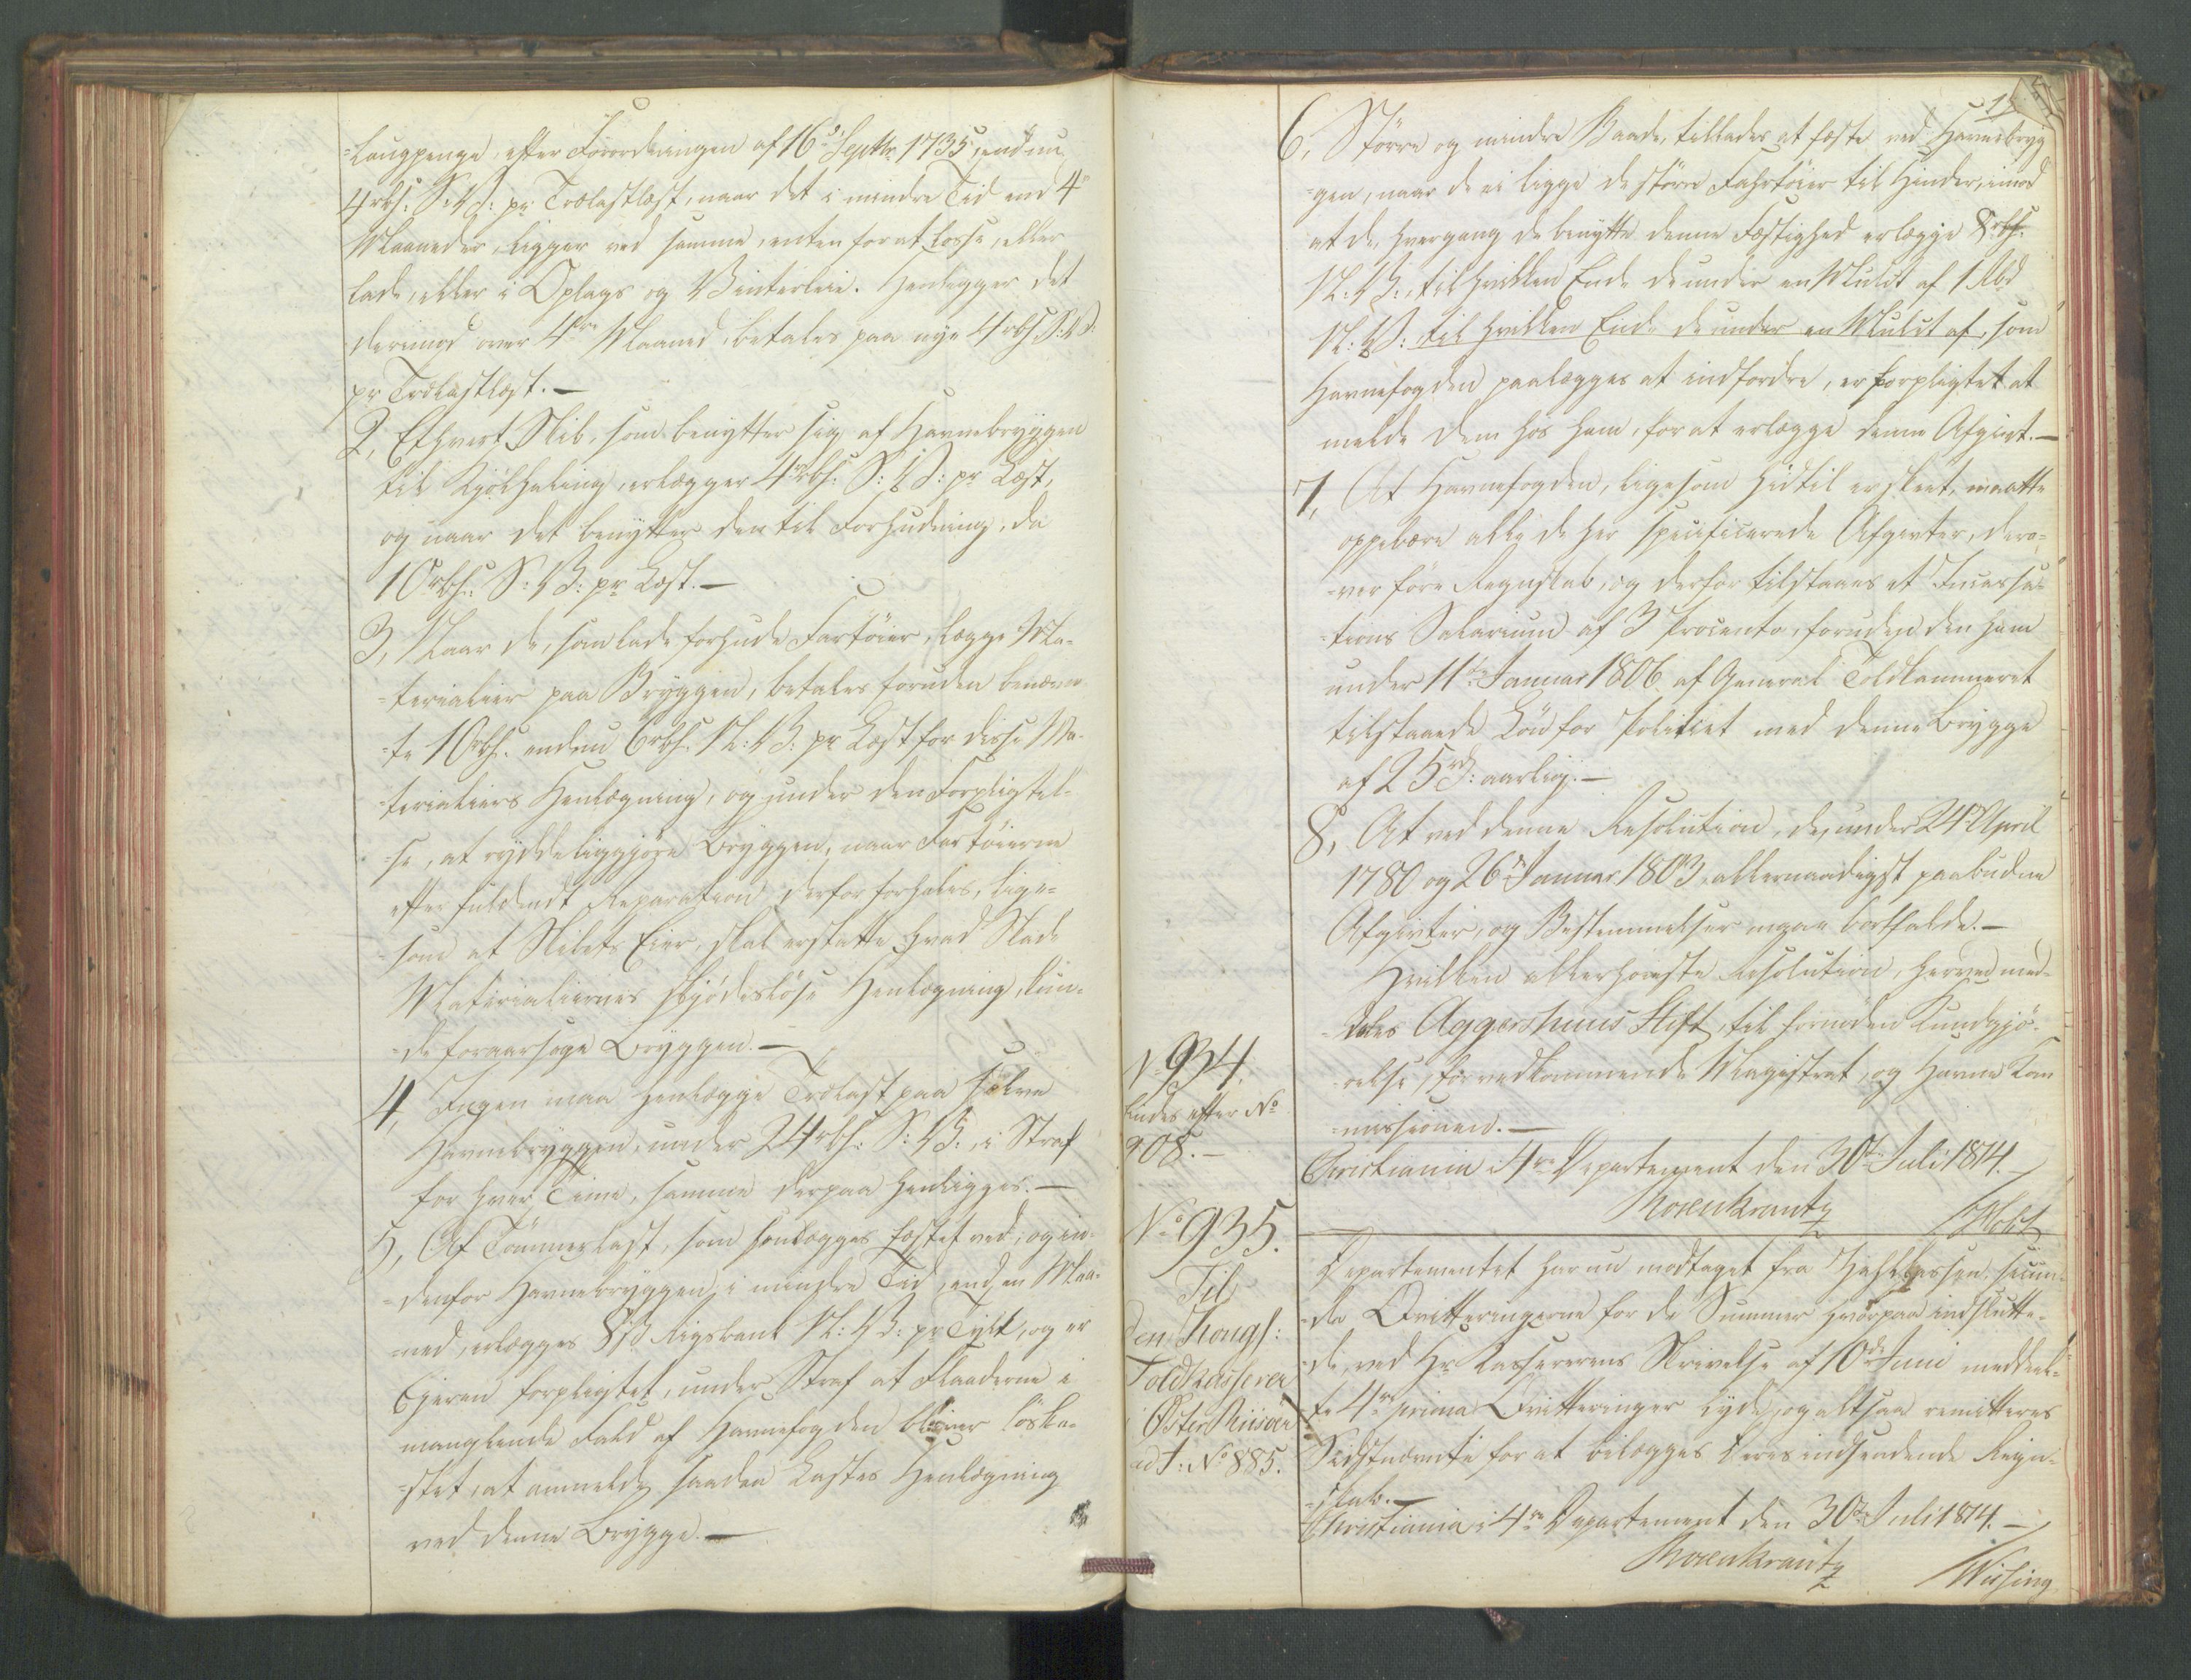 =Laugpenge, efter Forordningen af 16de Septbr 1735, endnu
4 rbs: S:V: pr Trælastlæst, naar det i mindre Tid end 4
Maaneder, ligger ved samme, enten for at losse, eller
lade, eller i Oplags og Vinterleie. Henligger det
derimod over 4re Maaned, betales paa nye 4 rbs S:V:
pr Trælastlæst. —
2, Ethvert Skib, som benytter sig af Havnebryggen
til Kjølhaling, erlægger 4 rbs: S:V: pr Læst,
og naar det benytter den til Forhudning, da
10 rbs: S:V: pr Læst. —
3, Naar de, som lade forhude Fartøier, lægge Ma-
=terialier paa Bryggen, betales foruden benævn-
=te 10 rbs: endnu 6 rbs. N:V: pr Læst for disse Ma-
=terialiers Henlægning, og under den Forpligtel-
=se, at ryddeliggjøre Bryggen, naar Fartøierne
efter fuldendt Reparation derfor forhales, lige-
=som at Skibets Eier, skal erstatte hvad Skade
Materialiernes skjødesløse Henlægning, kun-
=de foraarsage Bryggen. —
4, Ingen maa henlægge Trælast paa selve
Havnebryggen, under 24 rbs: S:V:, i Straf
for hver Time, samme derpaa henligges. —
5, Af Tømmerlast, som henlægges fæstet ved, og in-
=denfor Havnebryggen, i mindre Tid, end en Maa-
=ned, erlægges 8 s Rigsbank N:V: pr Tylt, og er
Eieren forpligtet, under Straf at Flaaderne i
manglende Fald af Havnefogden bliver løska-
=stet, at anmelde saadan Lastes Henlægning
ved denne Brygge. —
6, Større og mindre Baade, tillades at fæste ved Havnebryg
=gen, naar de ei ligge de større Fahrtøier til Hinder, imod
at de, hvergang de benytte denne Fæstighed erlægge 8 rbs.
N:V:, til hvilken Ende de under en Mulct af 1 Rbd
N:V: til hvilken Ende de under en Mulct af, som
Havnefogden paalægges at indfordre, er forpligtet at
melde dem hos ham, for at erlægge denne Afgivt. —
7, At Havnefogden, ligesom hidtil er skeet, maatte
oppebære alle de her specificerede Afgivter, dero-
=ver føre Regnskab, og derfor tilstaaes et Incassa-
=tions Salarium af 3 Procento, foruden den ham
under 11te Januar 1806 af General Toldkammeret
tilstaaede Løn for Politiet med denne Brygge
af 25 rd: aarlig. —
8, At ved denne Resolution, de, under 24de April
1780 og 26de Januar 1803, allernaadigst paabudne
Afgivter, og Bestemmelser maae bortfalde. —
Hvilken allerhøieste Resolution, herved med-
=deles Aggershuus Stift, til fornøden Kundgjø-
=relse, for vedkommende Magistrat, og Havne Com
=missionen. —
Christiania i 4re Departement den 30te Juli 1814. —
Rosenkrantz
/Holst
No 934.
findes efter No
908. —
No 935.
Til
den Kongl:
Toldkasserer
i Øster Riisøer
ad J: No 885.
Departementet har nu modtaget fra Zahlkassen, secun-
=da Qvitteringerne for de Summer hvorpaa indslutte-
=de, ved Hr Kassererens Skrivelse af 10de Juni meddeel-
=te 4re prima Qvitteringer lyde, og altsaa remitteres
Sidstnævnte for at bilægges Deres indsendende Regn-
=skab. —
Christiania i 4re Departement den 30te Juli 1814. —
Rosenkrantz
/Wiesing